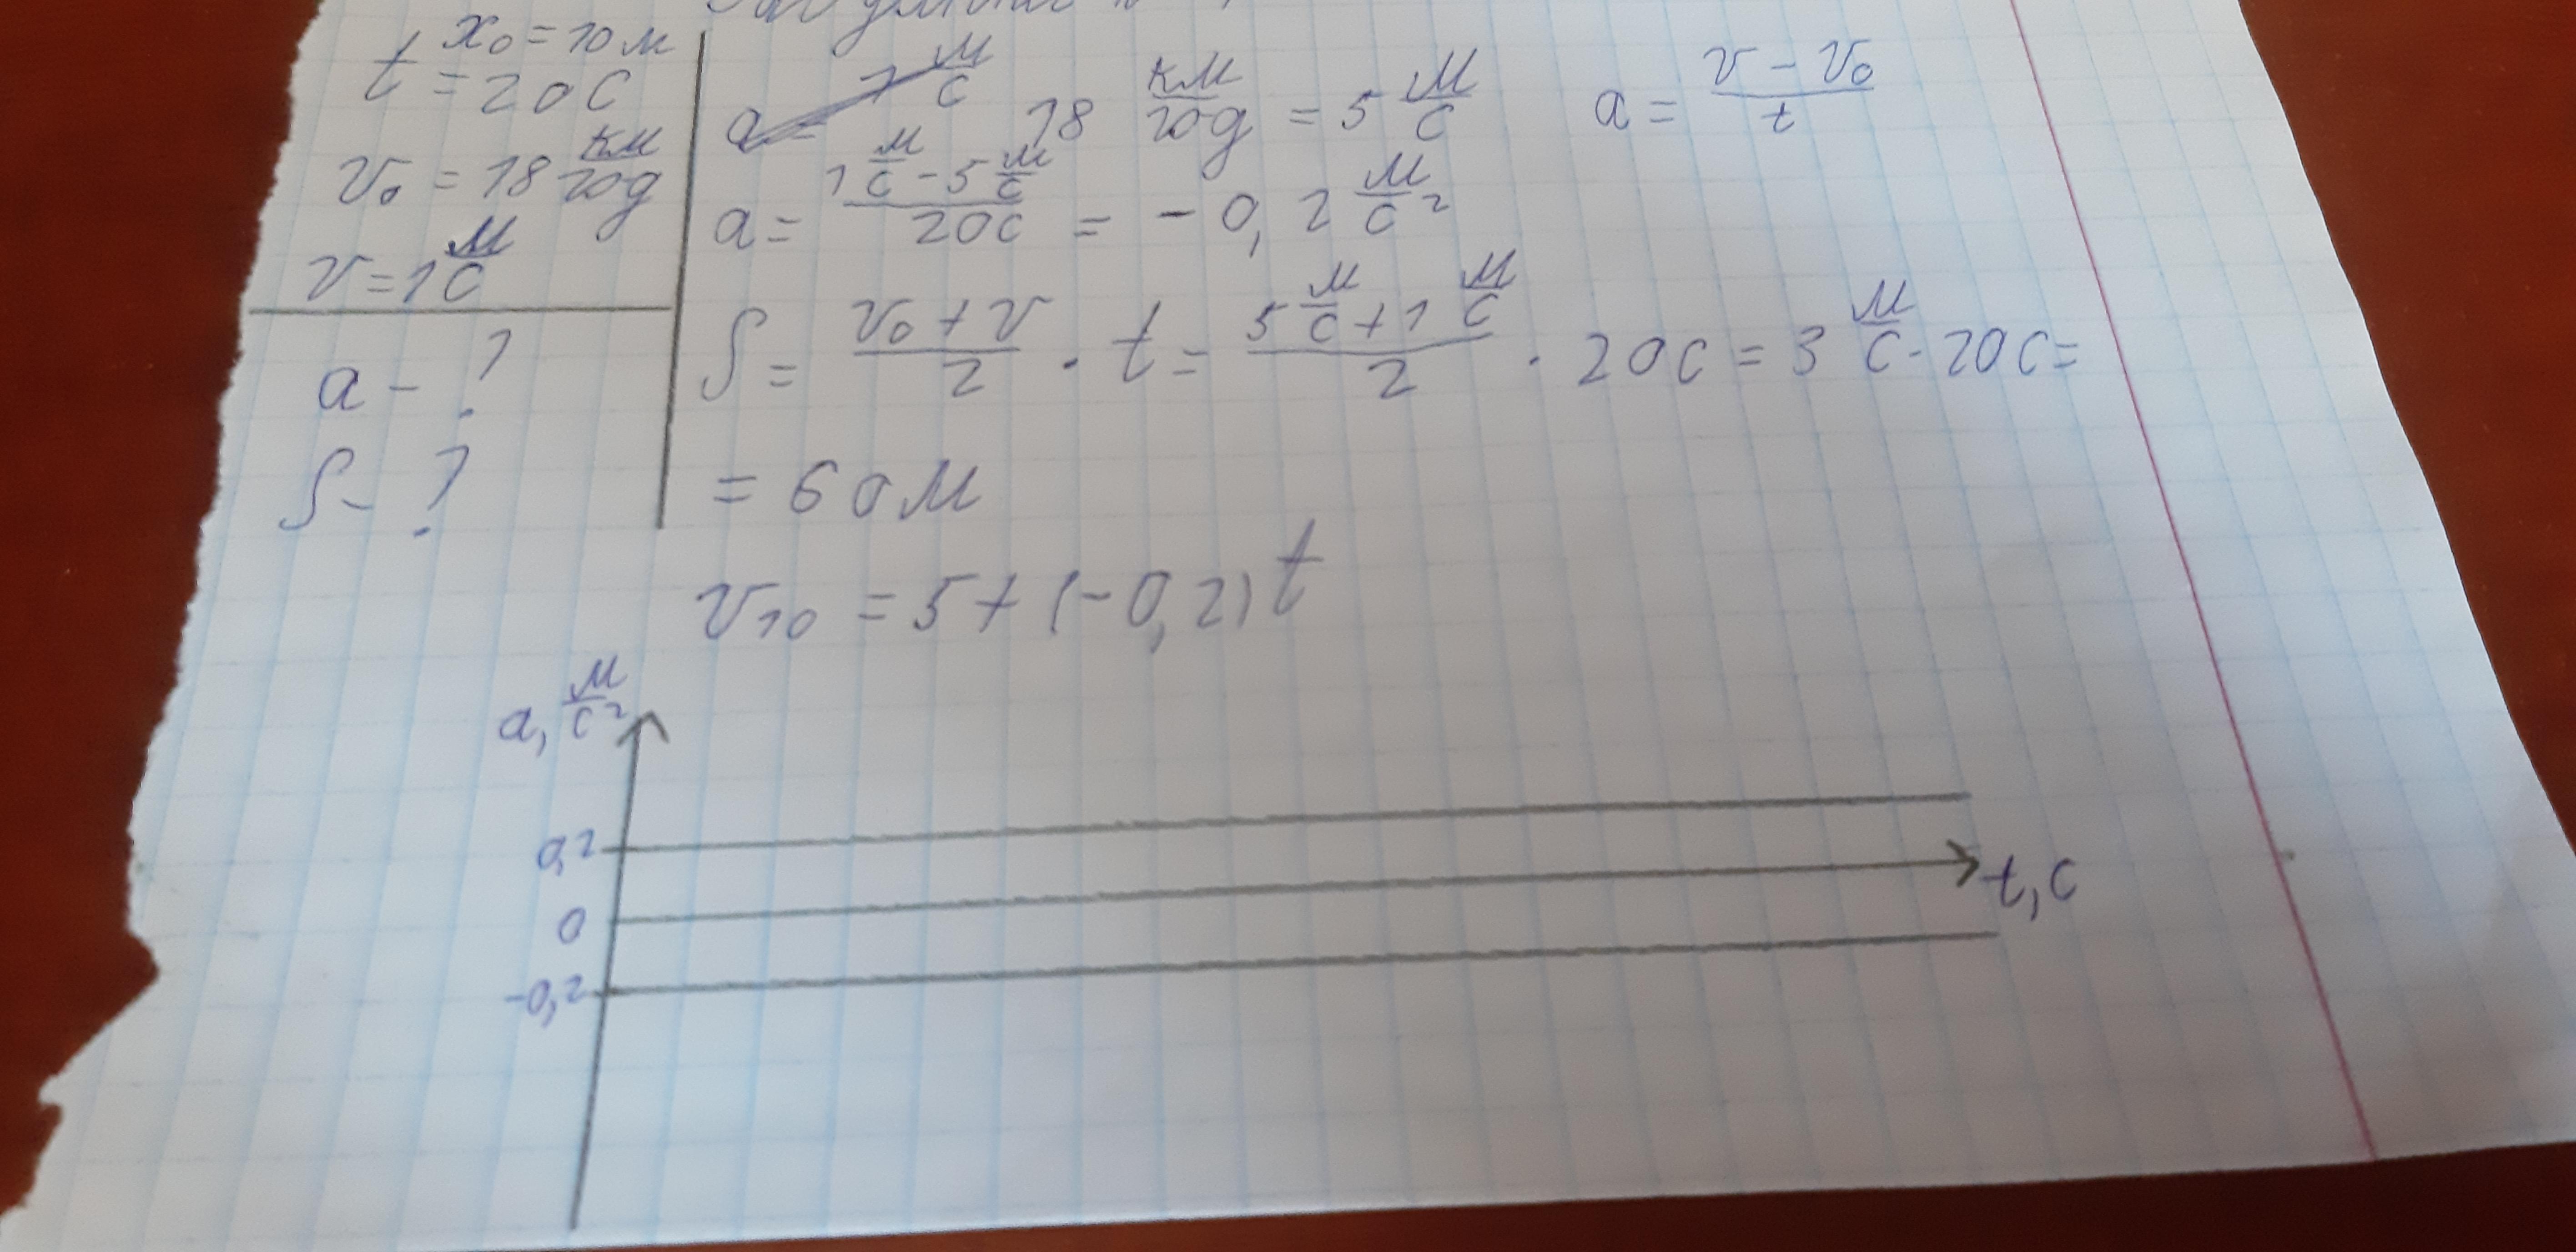 x₀ = 10 м
t = 20 с
v₀ = 18 км/год
v = 1 м/с
a - ?
S - ?
18 км/год = 5 м/с
a = (v - v₀)/t
a = (1 м/с - 5 м/с)/20с = - 0,2 м/с²
S = (v₀ + v)/2 · t = (5 м/с + 1 м/с)/2 · 20с = 3 м/с · 20с =
= 60 м
v₁₀ = 5 + (-0,2) t
a, м/с²
0,2
0
t, с
-0,2